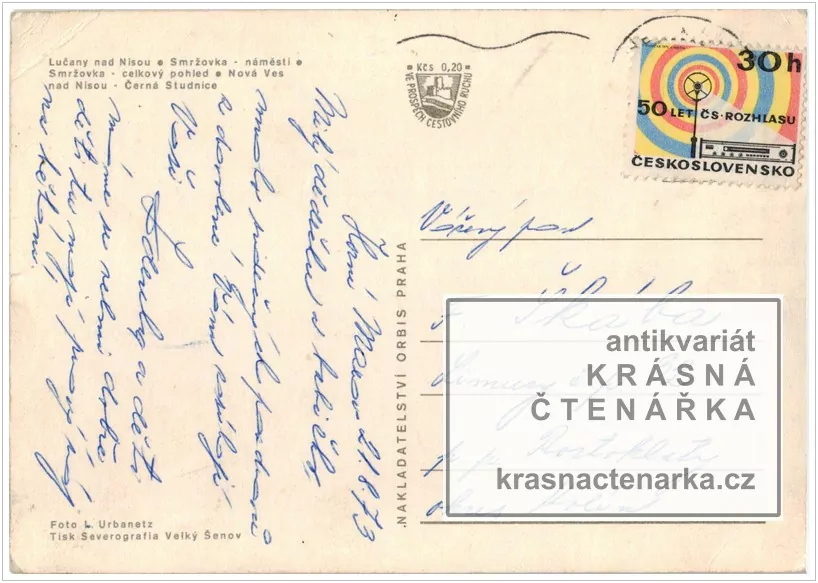 Lučany nad Nisou • Smržovka - náměstí •
Smržovka - celkový pohled • Nová Ves
nad Nisou - Černá Studnice
Kčs 0,20
VE PROSPĚCH CESTOVNÍHO RUCHU
30h
50 LET ČS. ROZHLASU
ČESKOSLOVENSKO
Horní Maxov 21.8.73
Milý dědečku a babičko
mnoho srdečných pozdravů
z dovolené Vám zasílají
Vaši
a děti
máme se velmi dobře
děti tu mají pravý ráj
Vážený pan
F. Škába
okres Kolín
NAKLADATELSTVÍ ORBIS PRAHA
antikvariát
KRÁSNÁ
ČTENÁŘKA
krasnactenarka.cz
Foto L. Urbanetz
Tisk Severografia Velký Šenov